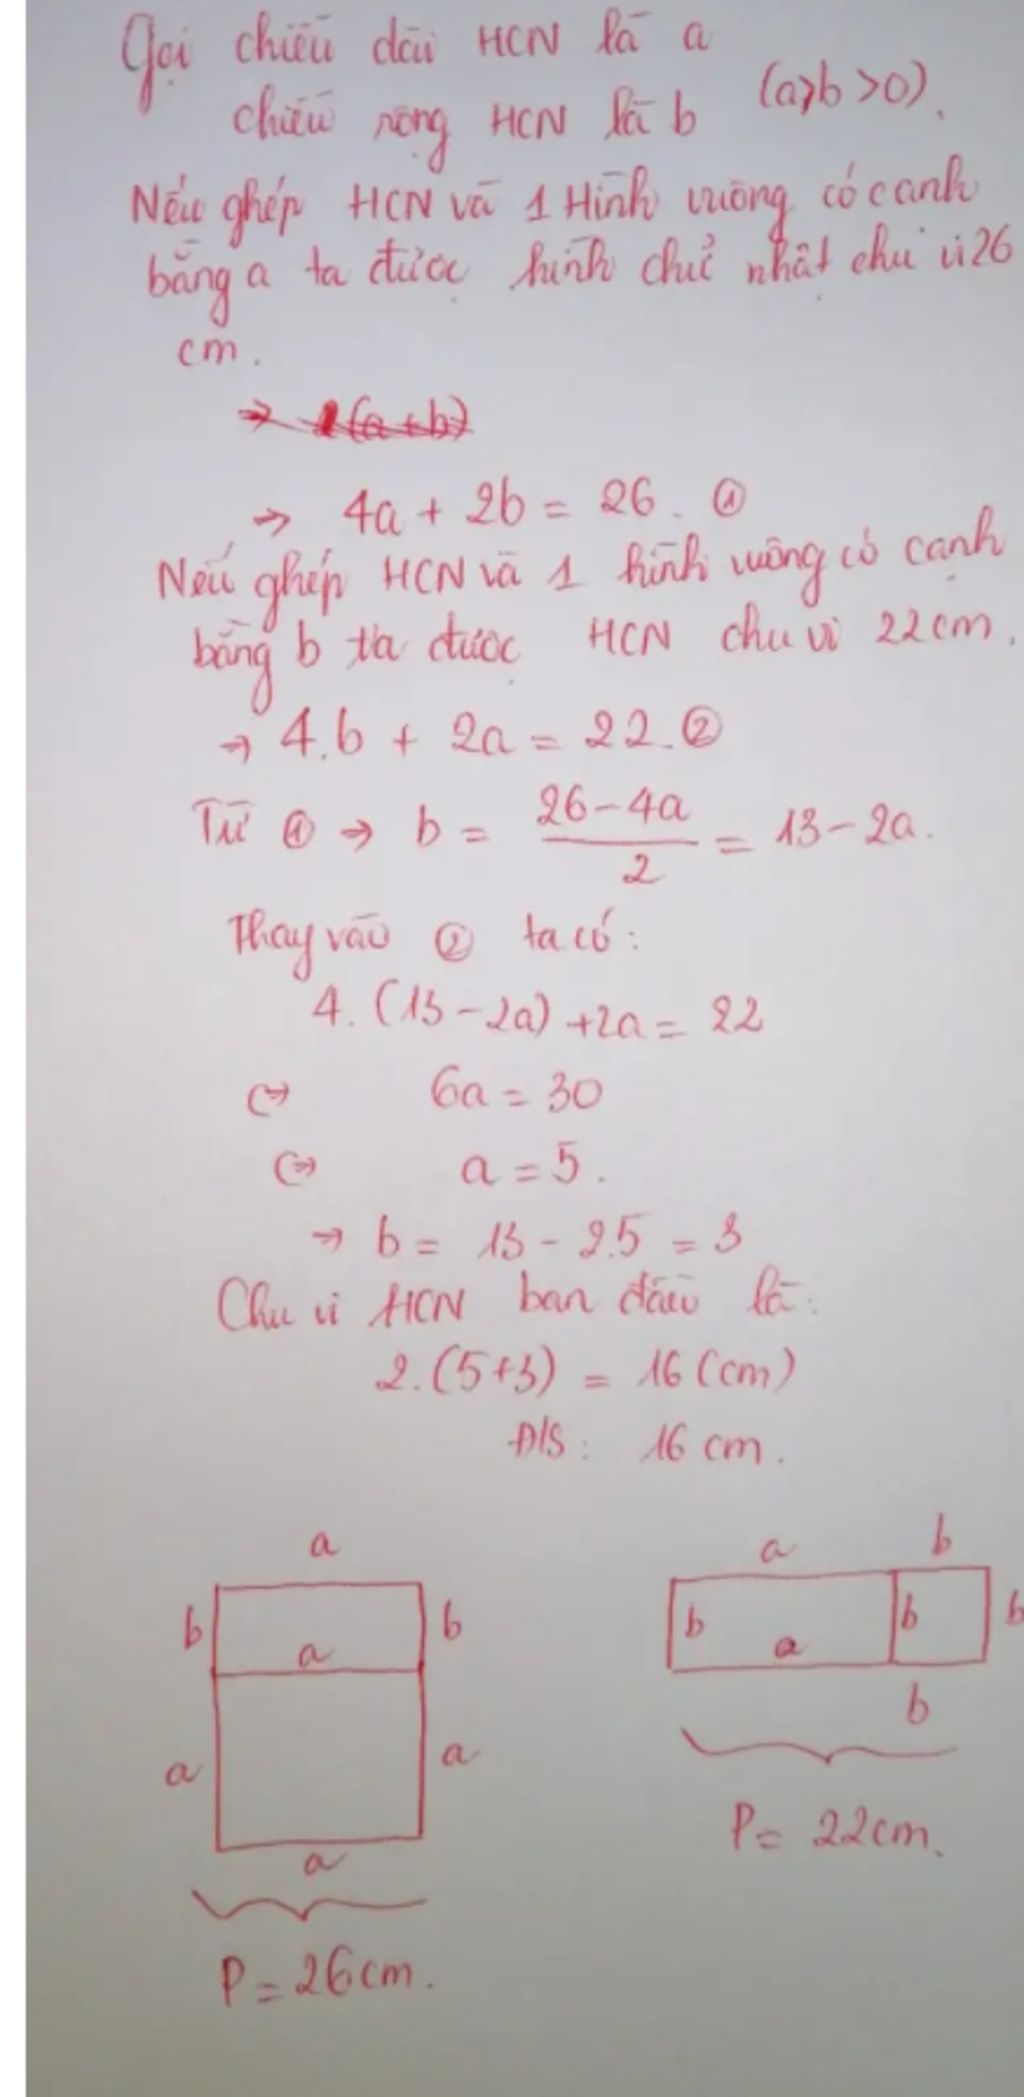 Gọi chiều dài HCN là a
chiều rộng HCN là b (a>b>0).
Nếu ghép HCN và 1 Hình vuông có canh
bằng a ta được hình chữ nhật chu vi 26
cm.
→ (a+b)
→ 4a + 2b = 26. ①
Nếu ghép HCN và 1 hình vuông có cạnh
bằng b ta được HCN chu vi 22cm.
→ 4.b + 2a = 22. ②
Từ ① → b = (26-4a)/2 = 13-2a.
Thay vào ② ta có:
4.(13-2a)+2a = 22
(=) 6a = 30
(=) a = 5.
→ b = 13 - 2.5 = 3
Chu vi HCN ban đầu là:
2.(5+3) = 16 (cm)
Đ/S: 16 cm.
a
b b
a
a a
a
P = 26cm.
a b
b a b b
b
P = 22cm.